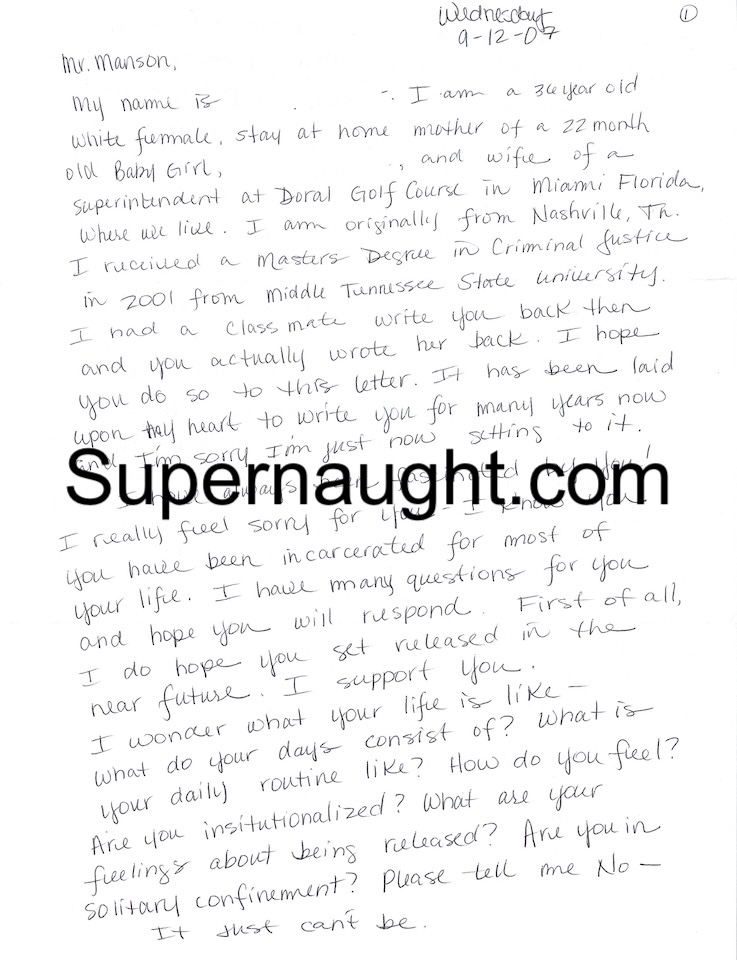 Wednesday
9-12-07
1
Mr. Manson,
My name is . I am a 34 year old
white female, stay at home mother of a 22 month
old Baby Girl, , and wife of a
superintendent at Doral Golf Course in Miami Florida,
where we live. I am originally from Nashville, Tn.
I received a Masters Degree in Criminal Justice
in 2001 from Middle Tennessee State University.
I had a classmate write you back then
and you actually wrote her back. I hope
you do so to this letter. It has been laid
upon my heart to write you for many years now
and I'm sorry I'm just now getting to it.
Supernaught.com
I have always been fascinated by you!
I really feel sorry for you - I know you
you have been incarcerated for most of
your life. I have many questions for you
and hope you will respond. First of all,
I do hope you get released in the
near future. I support you.
I wonder what your life is like -
what do your days consist of? What is
your daily routine like? How do you feel?
Are you insitutionalized? What are your
feelings about being released? Are you in
solitary confinement? Please tell me No -
It just can't be.